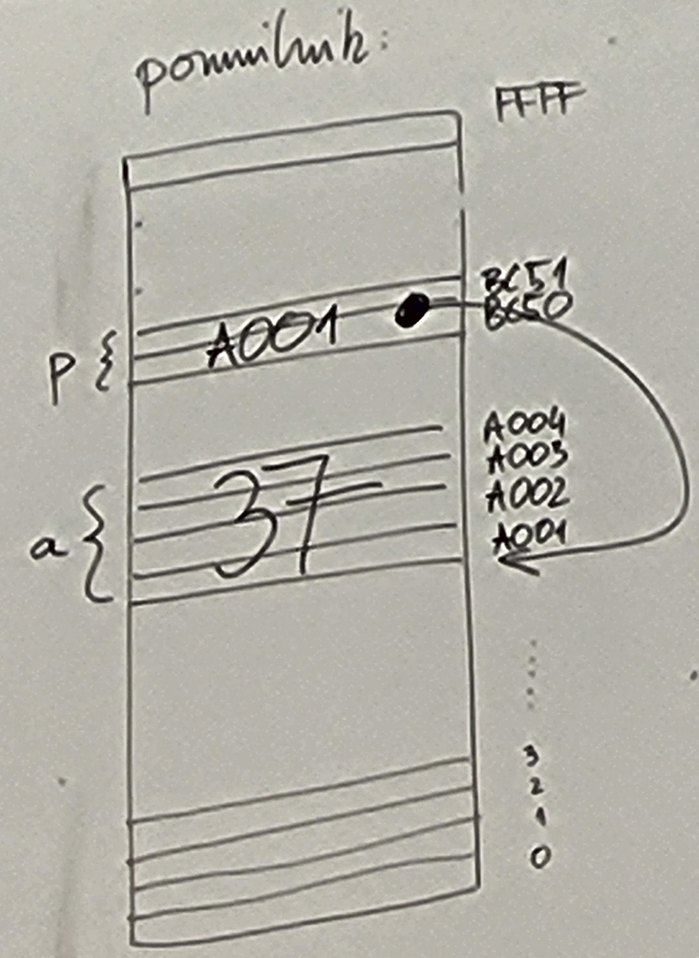 pomnilnik:
FFFF
BC51
BC50
p { A001
A004
A003
A002
A001
a { 37
3
2
1
0